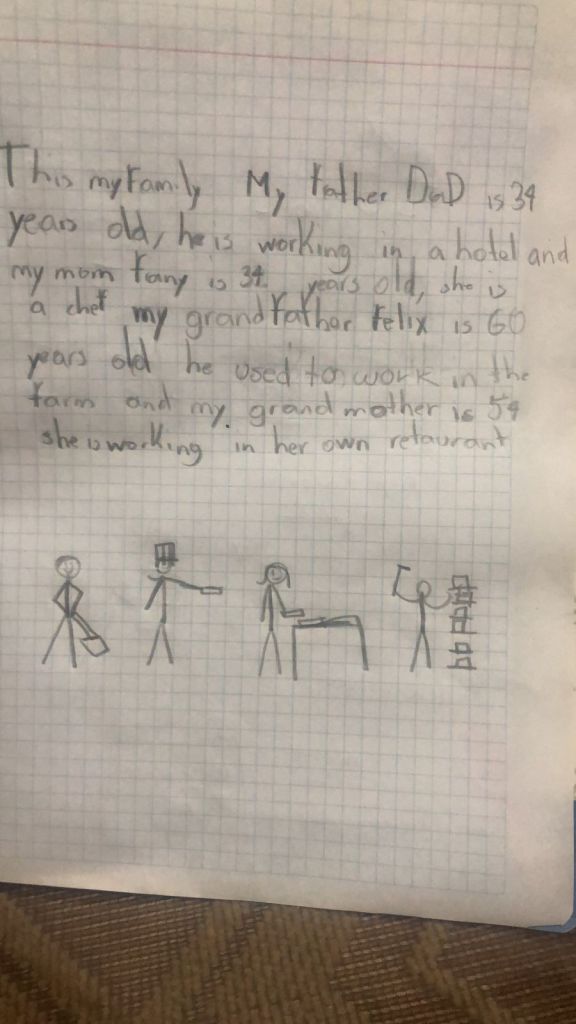 This my Family My father DaD is 34
years old, he is working in a hotel and
my mom fany is 34 years old, she is
a chef my grandfather Felix is 60
years old he used to work in the
farm and my grand mother is 59
she is working in her own retaurant